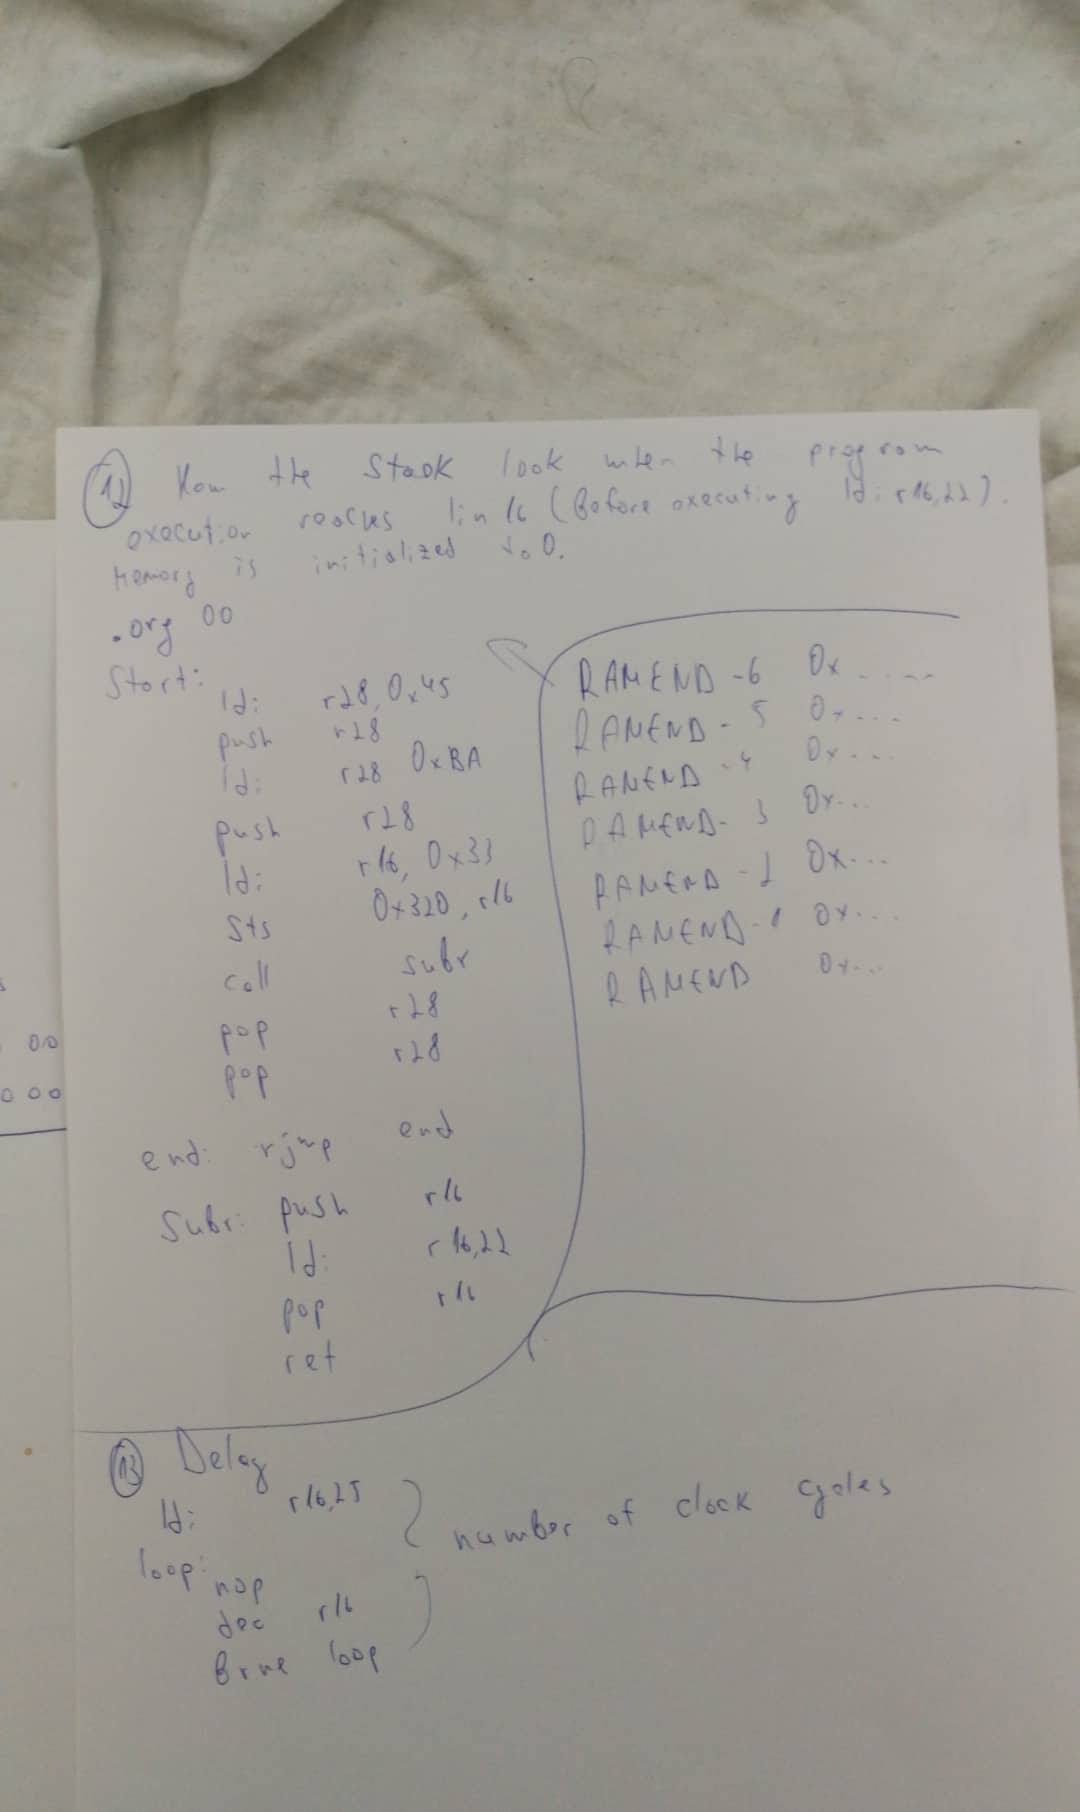 12 How the stack look when the program
execution reaches lin 16 (Before executing ldi r16,22).
Memory is initialized to 0.
.org 00
Start:
ldi r28, 0x45
push r28
ldi r28 0xBA
push r28
ldi r16, 0x33
sts 0x320, r16
call subr
pop r28
pop r28
end: rjmp end
Subr: push r16
ldi r16,22
pop r16
ret
RAMEND -6 0x.....
RAMEND - 5 0x...
RAMEND -4 0x...
RAMEND- 3 0x...
RAMEND -2 0x...
RAMEND -1 0x...
RAMEND 0x...
13 Delay
ldi r16,25
loop: nop
dec r16
Brne loop
number of clock cycles
00
000